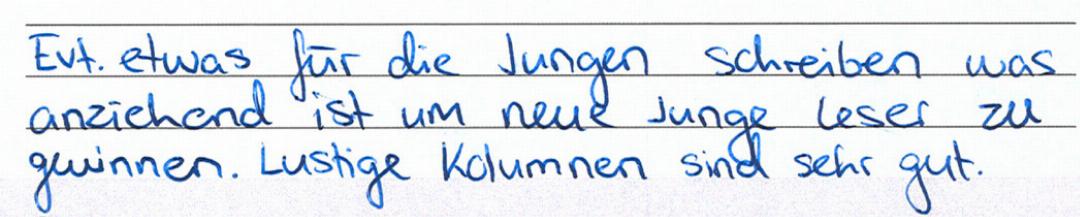 Evt. etwas für die Jungen schreiben was
anziehend ist um neue Junge Leser zu
gwinnen. Lustige Kolumnen sind sehr gut.